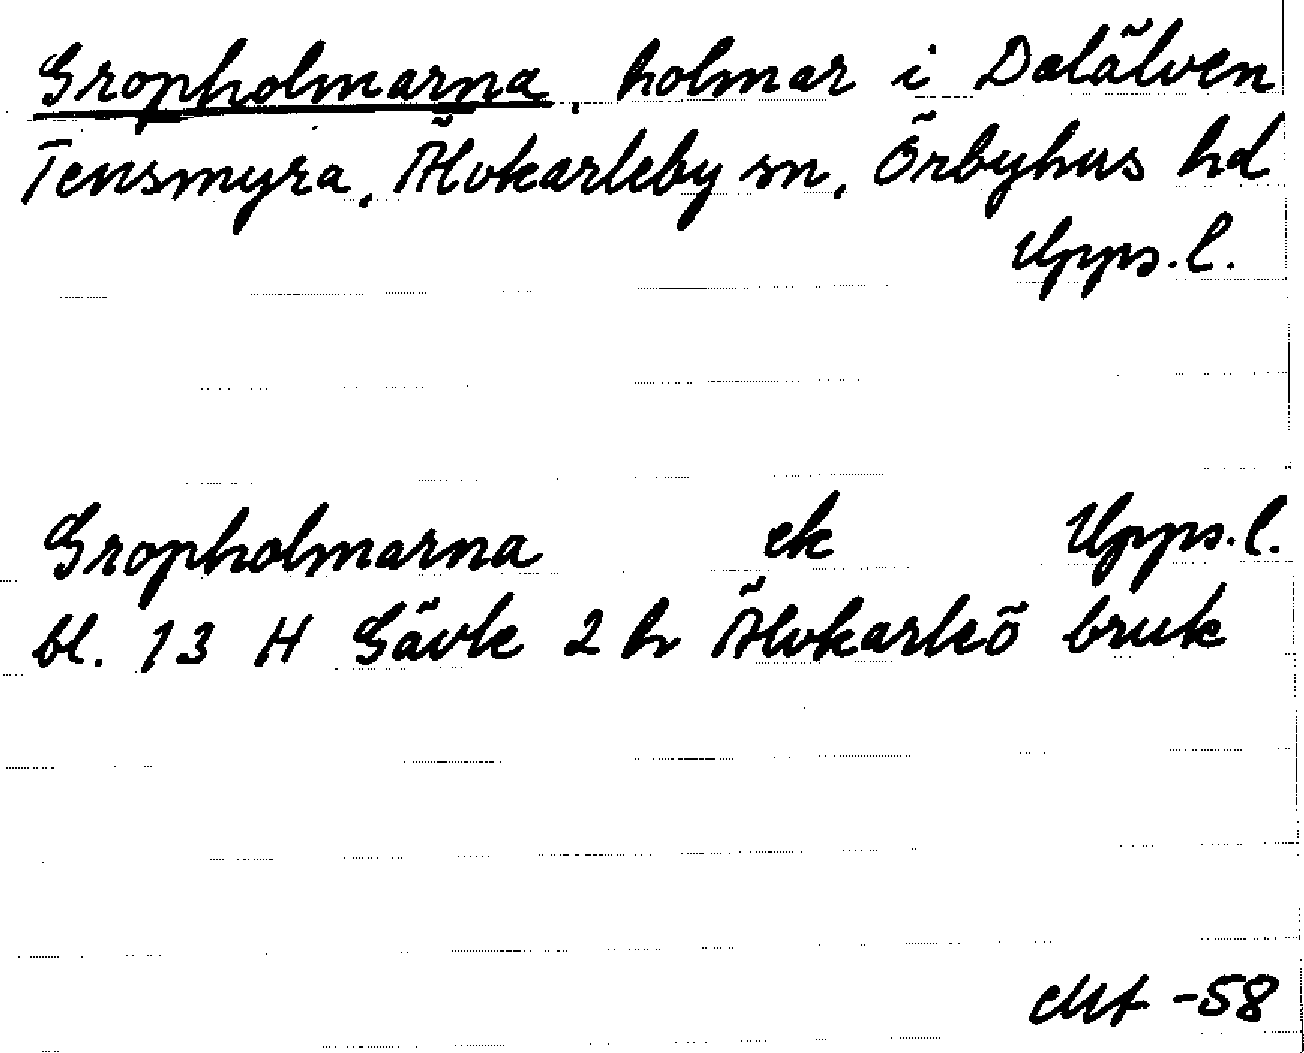 Gropholmarna, holmar i Dalälven
Tensmyra, Älvkarleby sn, Örbyhus hd
Upps. l.
Gropholmarna ek Upps. l.
bl. 13 H Gävle 2 h Älvkarleö bruk
-58